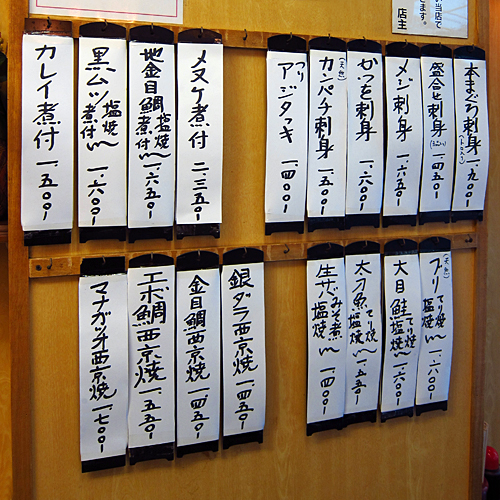 当店で
ます。
店主
本まぐろ刺身 一、九〇〇
盛合せ刺身 一、四五〇
メジ刺身 一、六五〇
かつを刺身 一、六〇〇
(天然)
カンパチ刺身 一、五〇〇
つり
アジタタキ 一、四〇〇
メヌケ煮付 二、三五〇
地金目鯛塩焼煮付 〜 一、六五〇
黒ムツ塩焼煮付 〜 一、六〇〇
カレイ煮付 一、五〇〇
(天然)
ブリてり焼塩焼 〜 一、六〇〇
大目鮭てり焼塩焼 〜 一、六〇〇
太刀魚てり焼塩焼 〜 一、五五〇
生サバみそ煮塩焼 〜 一、四〇〇
銀ダラ西京焼 一、四五〇
金目鯛西京焼 一、四五〇
エボ鯛西京焼 一、五五〇
マナガツオ西京焼 一、七〇〇